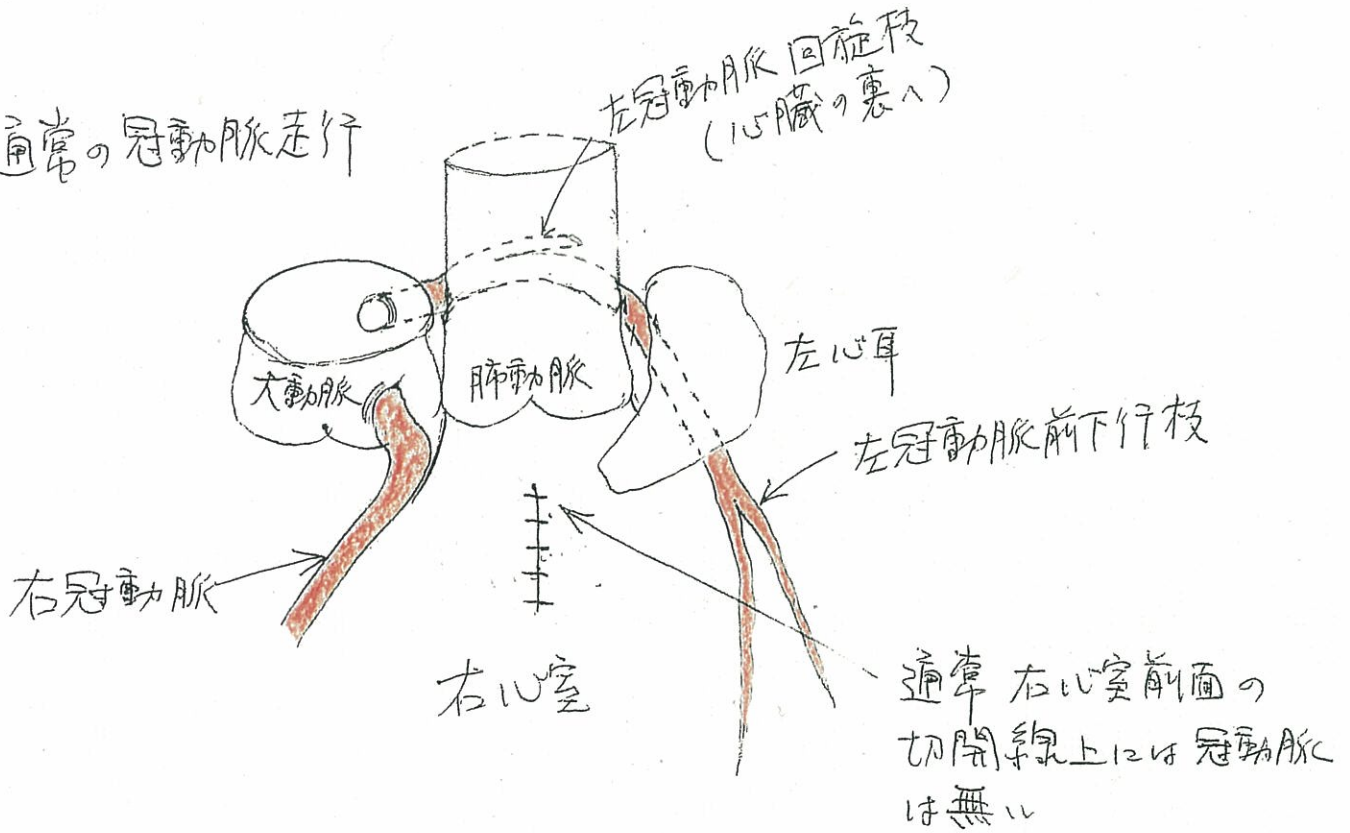 通常の冠動脈走行
左冠動脈回旋枝
(心臓の裏へ)
大動脈
肺動脈
左心耳
左冠動脈前下行枝
右冠動脈
右心室
通常 右心室前面の
切開線上には冠動脈
は無い